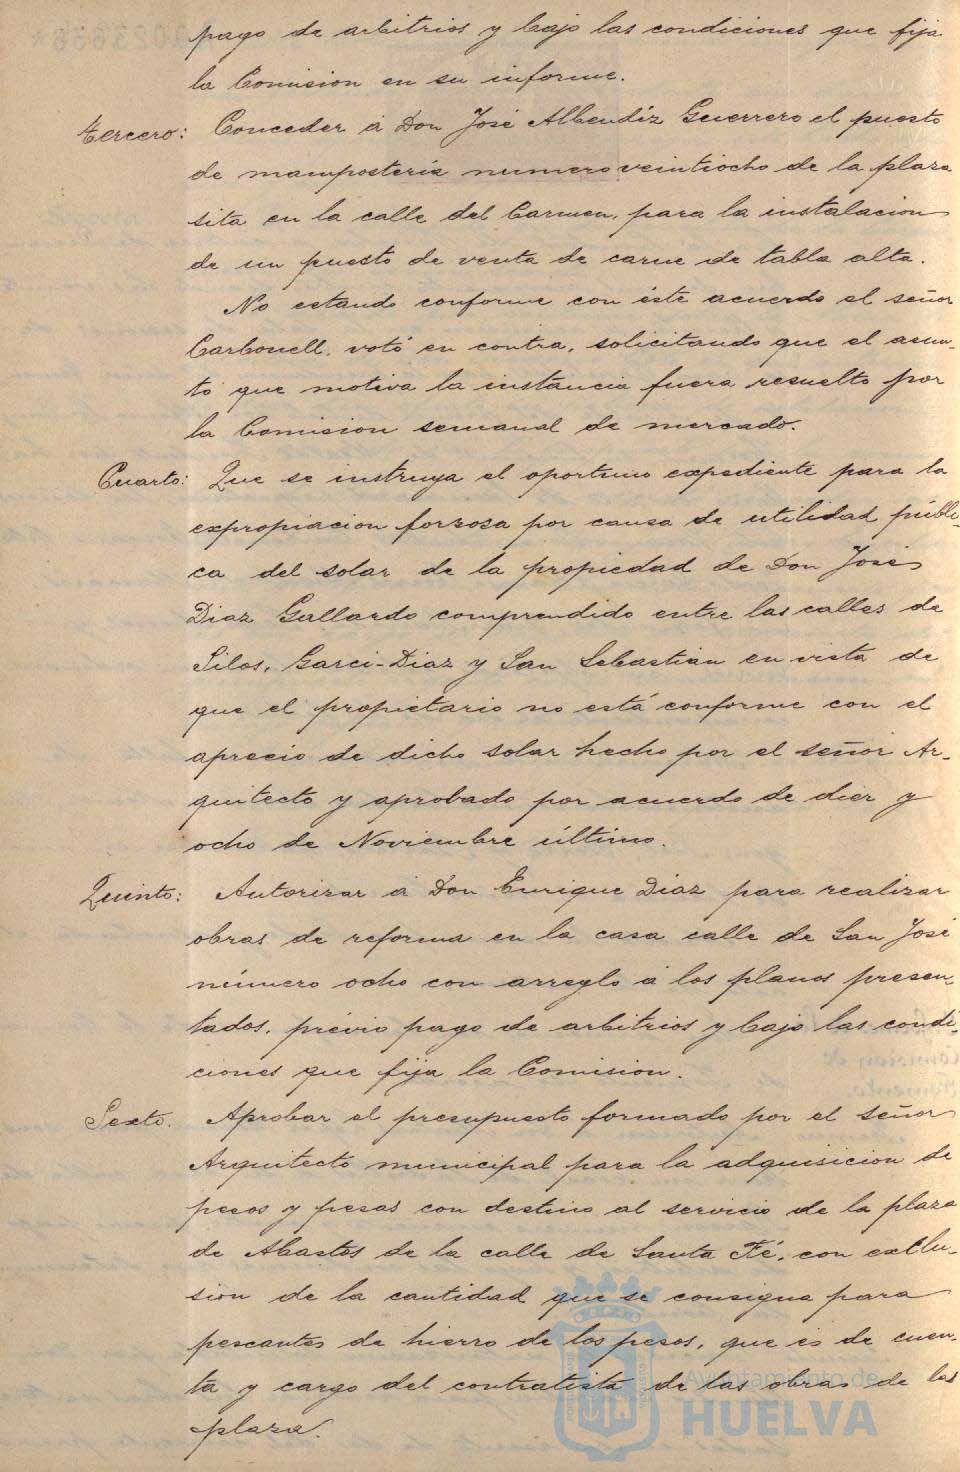 pago de arbitrios y bajo las condiciones que fija
la Comision en su informe.
tercero: Conceder á Don José Albendiz Guerrero el puesto
de mamposteria numero veintiocho de la plaza
sita en la calle del Carmen, para la instalacion
de un puesto de venta de carne de tabla alta.
No estando conforme con éste acuerdo el señor
Carbonell, votó en contra, solicitando que el asun-
to que motiva la instancia fuera resuelto por
la Comision semanal de mercado.
Cuarto: Que se instruya el oportuno expediente para la
expropiacion forzosa por causa de utilidad públi-
ca del solar de la propiedad de Don José
Diaz Gallardo comprendido entre las calles de
Silos, Garci-Diaz y San Sebastián en vista de
que el propietario no está conforme con el
aprecio de dicho solar hecho por el señor Ar-
quitecto y aprobado por acuerdo de diez y
ocho de Noviembre último.
Quinto: Autorizar á Don Enrique Diaz para realizar
obras de reforma en la casa calle de San José
número ocho con arreglo á los planos presen-
tados, prévio pago de arbitrios y bajo las condi-
ciones que fija la Comision.
Sexto. Aprobar el presupuesto formado por el señor
Arquitecto municipal para la adquisicion de
pesos y pesas con destino al servicio de la plaza
de Abastos de la calle de Santa Fé, con exclu-
sion de la cantidad que se consigna para
pescantes de hierro de los pesos, que es de cuen-
ta y cargo del contratista de las obras de la
plaza.
Ayuntamiento de
HUELVA